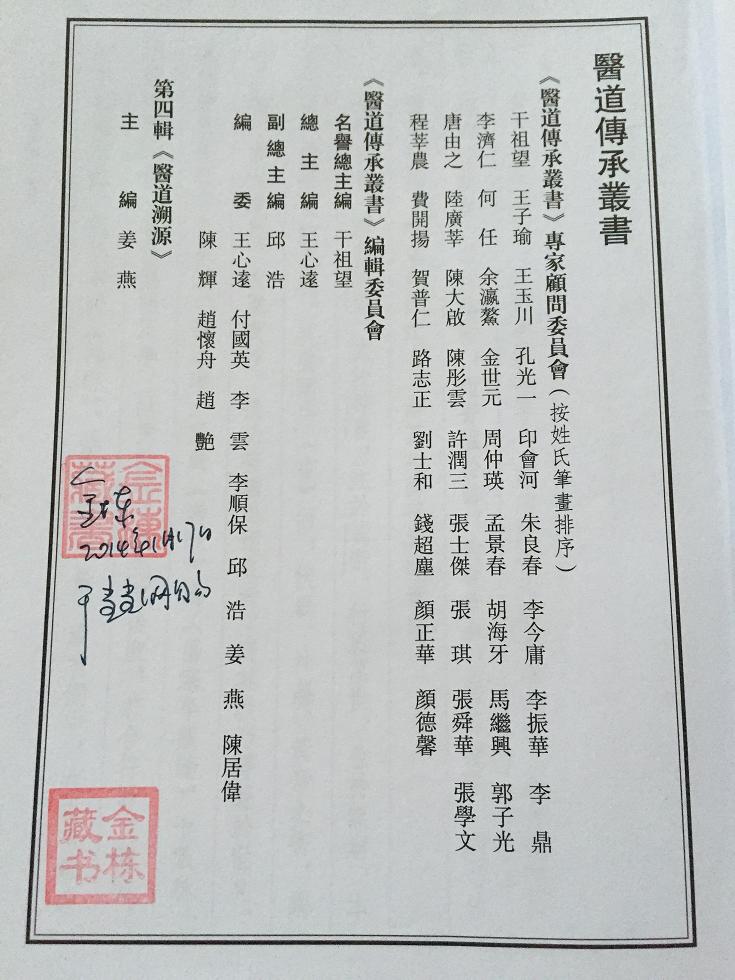 醫道傳承叢書
《醫道傳承叢書》專家顧問委員會(按姓氏筆畫排序)
干祖望 王子瑜 王玉川 孔光一 印會河 朱良春 李今庸 李振華 李 鼎
李濟仁 何 任 余瀛鰲 金世元 周仲瑛 孟景春 胡海牙 馬繼興 郭子光
唐由之 陸廣莘 陳大啟 陳彤雲 許潤三 張士傑 張 琪 張舜華 張學文
程莘農 費開揚 賀普仁 路志正 劉士和 錢超塵 顏正華 顏德馨
《醫道傳承叢書》編輯委員會
名譽總主編 干祖望
總 主 編 王心遠
副總主編 邱 浩
編 委 王心遠 付國英 李 雲 李順保 邱 浩 姜 燕 陳居偉
陳 輝 趙懷舟 趙 艷
第四輯《醫道溯源》
主 編 姜 燕
金栋
藏书